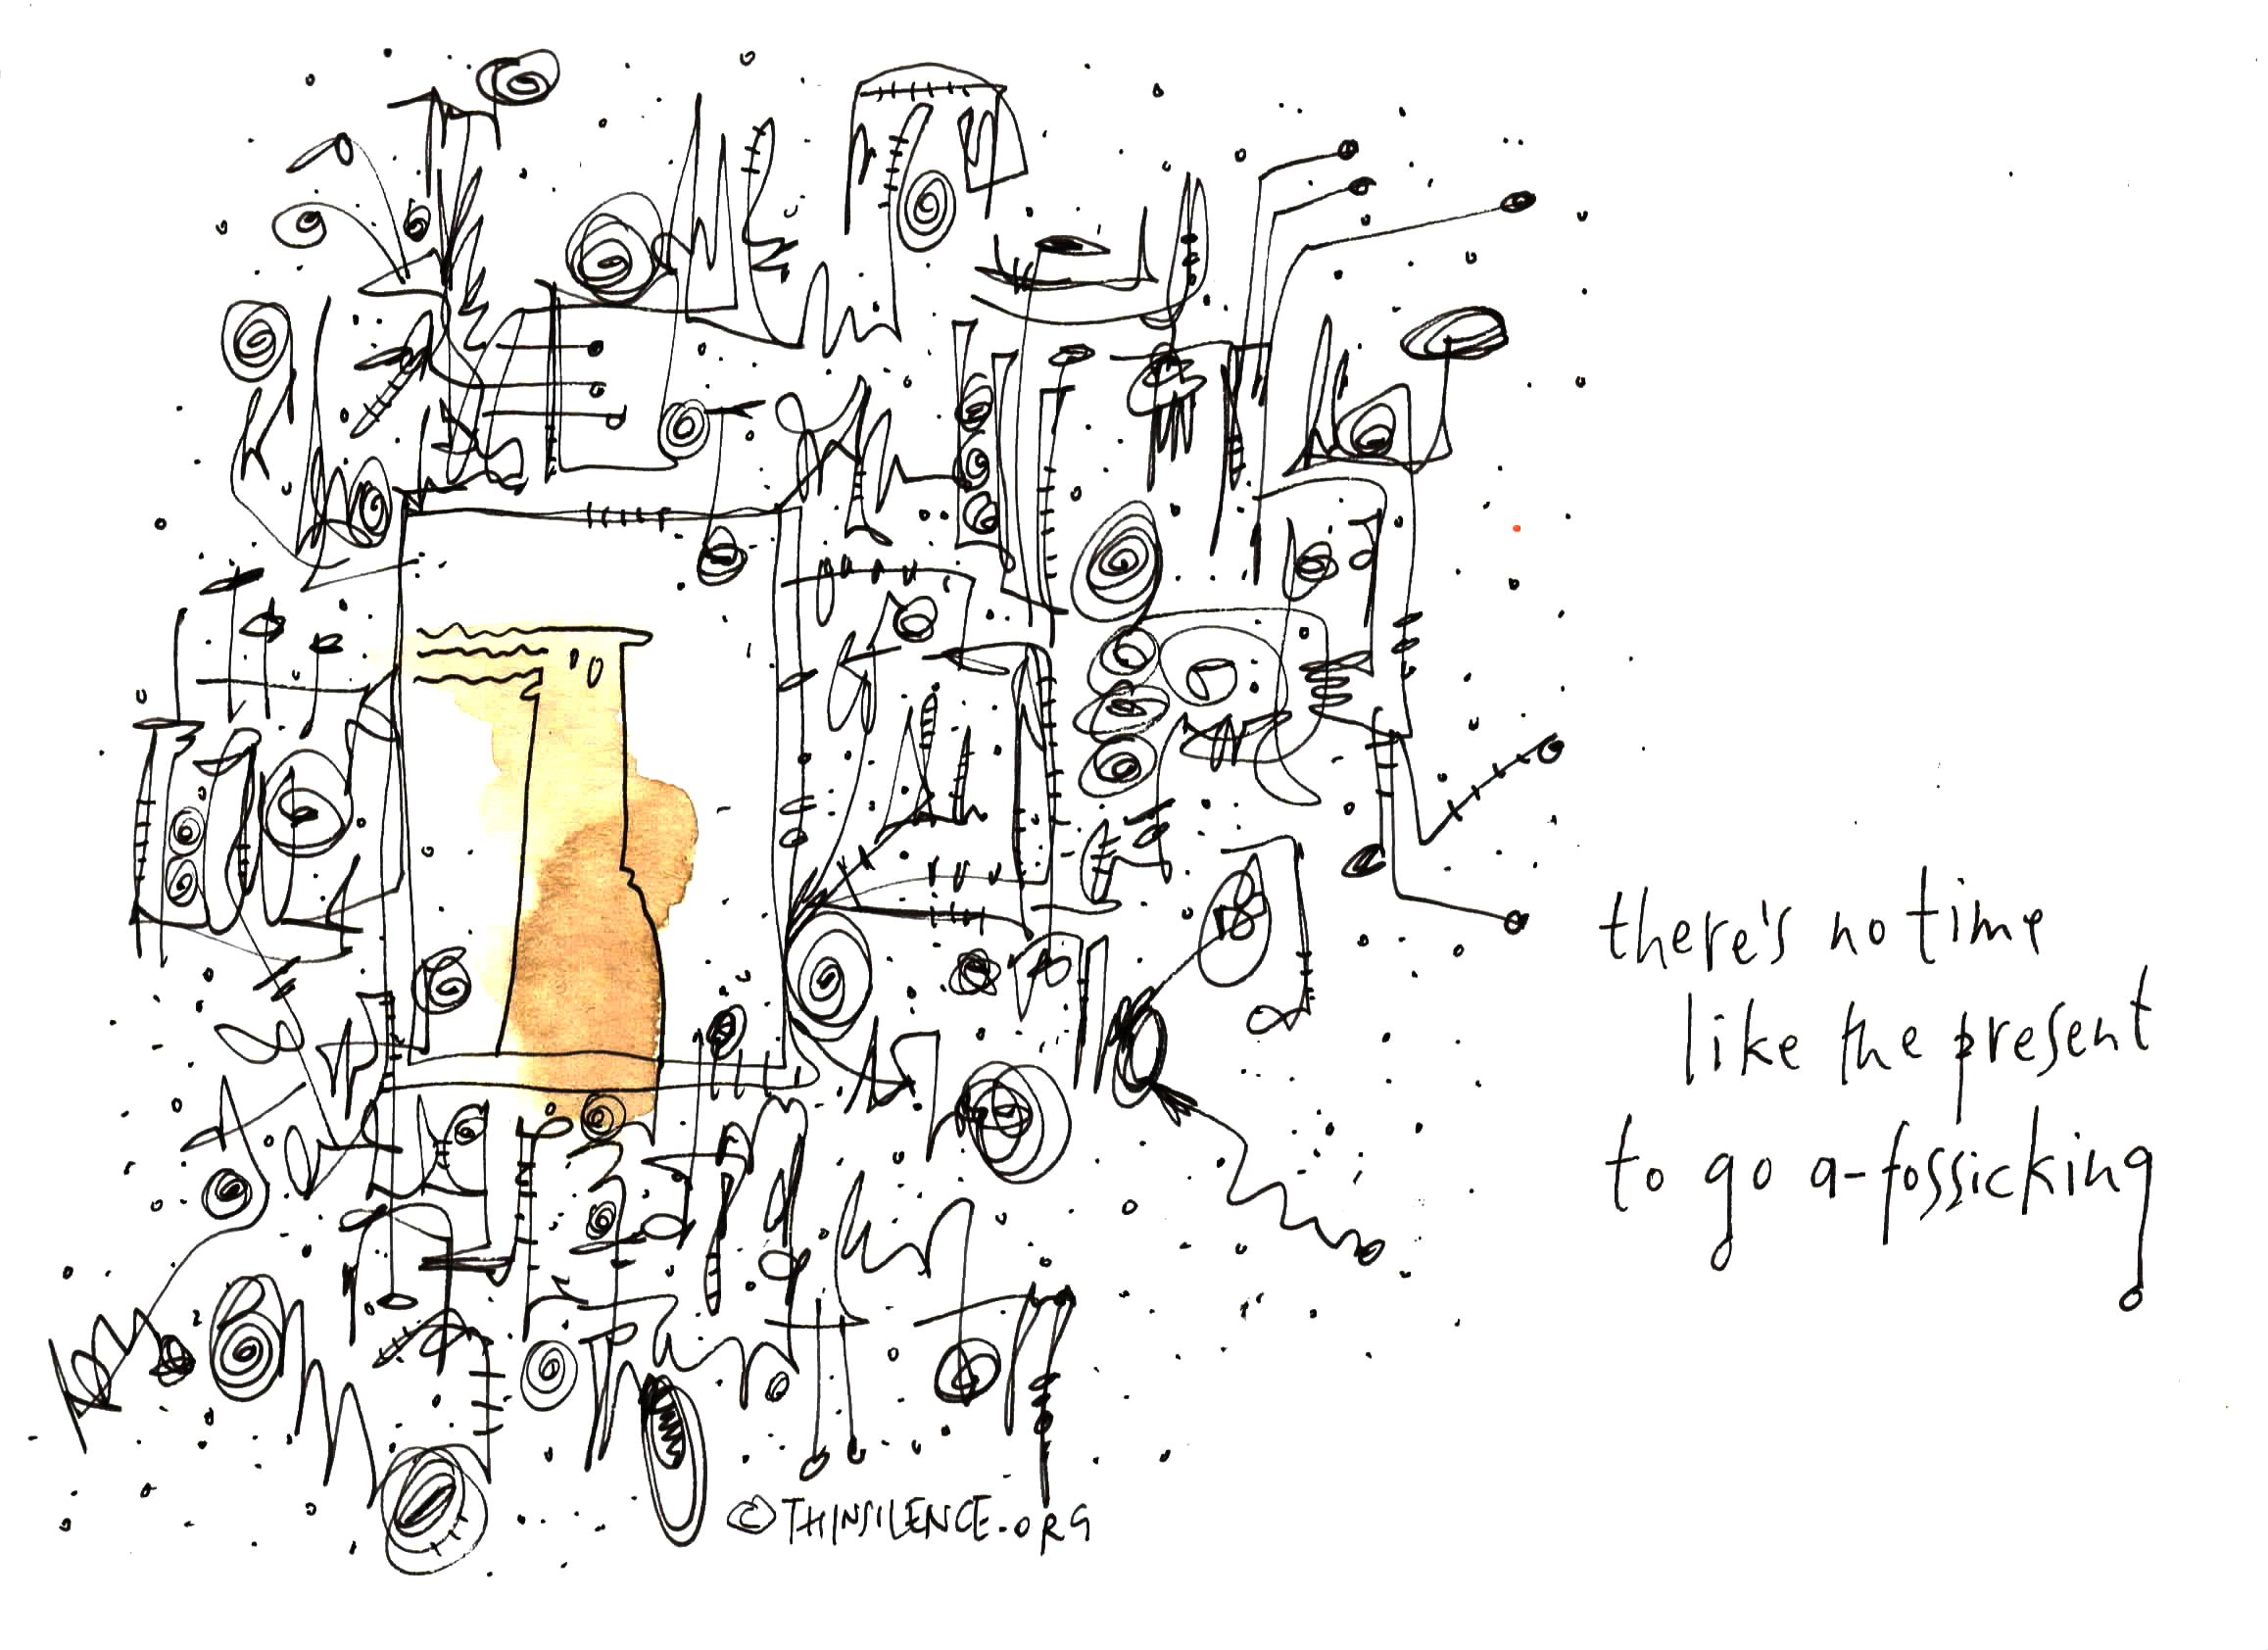 there's no time
like the present
to go a-fossicking
© THINSILENCE.ORG